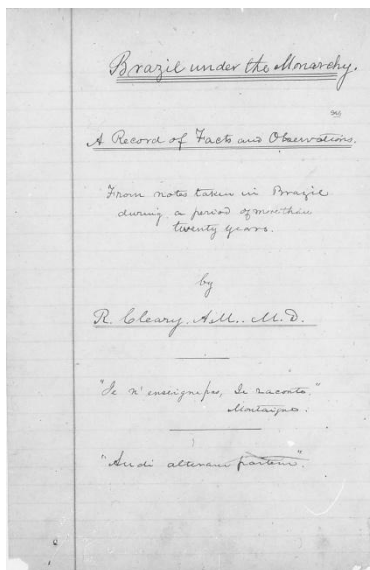 Brazil under the Monarchy.
A Record of Facts and Observations.
From notes taken in Brazil
during a period of more than
twenty years.
by
R. Cleary, A.M., M.D.
"Je n'enseigne pas, Je raconte."
Montaigne.
"Audi alteram partem".